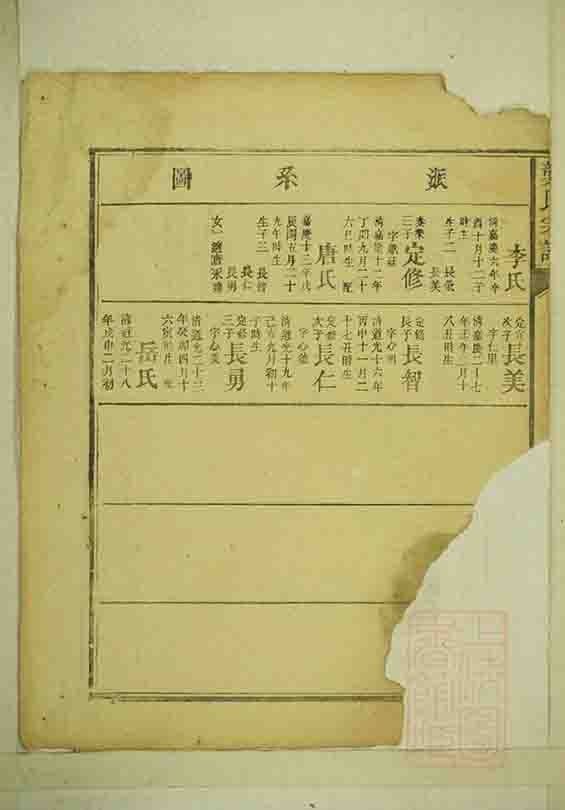 氏宗譜
派系圖
李氏
清嘉慶六年辛
酉十月十二子
時生
生子二 長榮
長美
泰來
三子
定修
字敬莊
清嘉慶十二年
丁卯九月二十
六巳時生 配
唐氏
嘉慶十三年戊
辰閏五月二十
九午時生
生子三 長智
長仁
長勇
女一適
次子
長美
字仁里
清嘉慶二十七
年壬午二月十
八丑時生
定修
長子
長智
字心明
清道光十六年
丙申十一月二
十七丑時生
定修
次子
長仁
字心德
清道光十九年
己亥九月初十
子時生
定修
三子
長勇
字心美
清道光二十三
年癸卯四月十
六寅時生 配
岳氏
清道光二十八
年戊申二月初